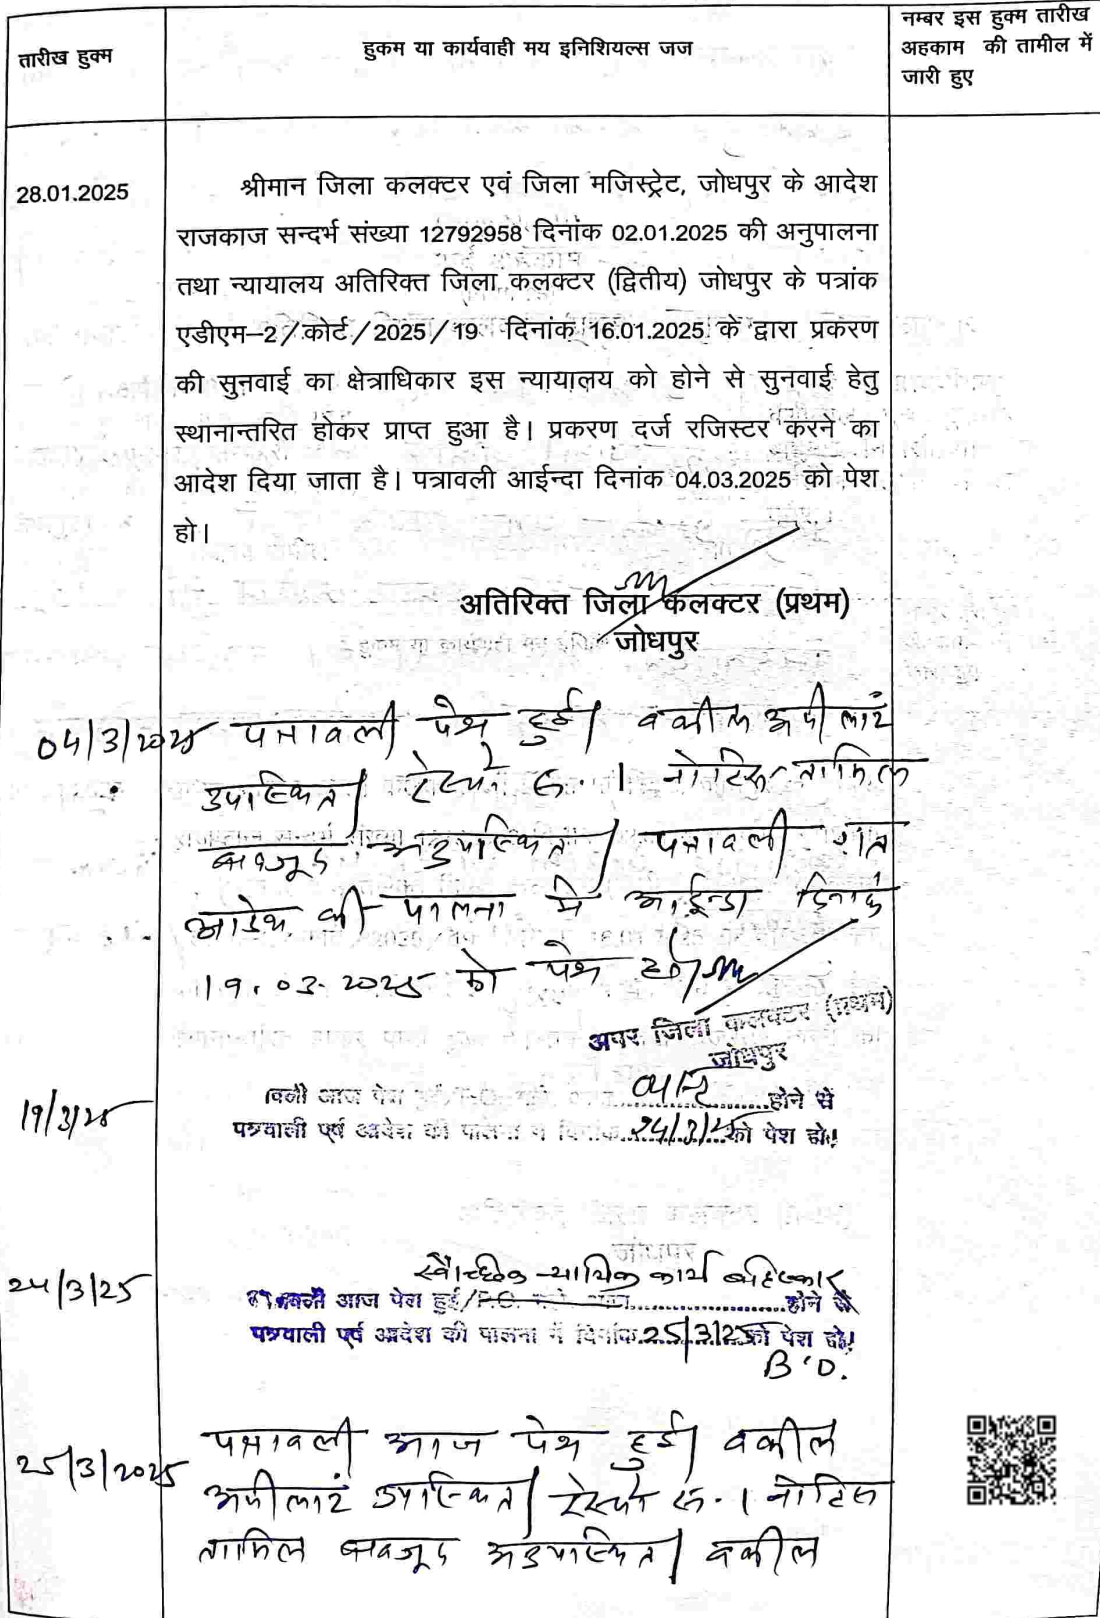 तारीख हुक्म
हुकम या कार्यवाही मय इनिशियल्स जज
नम्बर इस हुक्म तारीख
अहकाम की तामील में
जारी हुए
28.01.2025
श्रीमान जिला कलक्टर एवं जिला मजिस्ट्रेट, जोधपुर के आदेश
राजकाज सन्दर्भ संख्या 12792958 दिनांक 02.01.2025 की अनुपालना
तथा न्यायालय अतिरिक्त जिला कलक्टर (द्वितीय) जोधपुर के पत्रांक
एडीएम–2/कोर्ट/2025/19 दिनांक 16.01.2025 के द्वारा प्रकरण
की सुनवाई का क्षेत्राधिकार इस न्यायालय को होने से सुनवाई हेतु
स्थानान्तरित होकर प्राप्त हुआ है। प्रकरण दर्ज रजिस्टर करने का
आदेश दिया जाता है। पत्रावली आईन्दा दिनांक 04.03.2025 को पेश
हो।
अतिरिक्त जिला कलक्टर (प्रथम)
जोधपुर
04/3/2025 पत्रावली पेश हुई। वकील अपीलांट
उपस्थित। रेस्पो. सं. 1 नोटिस तामिल
बावजूद अनुपस्थित। पत्रावली गत
आदेश की पालना में आईन्दा दिनांक
19.03.2025 को पेश हो।
अपर जिला कलक्टर (प्रथम)
जोधपुर
19/3/25
वली आज पेश हुई/P.O. होने से
पत्रवाली पूर्व आदेश की पालना में दिनांक 24/3/25 को पेश हो।
24/3/25
स्वैच्छिक न्यायिक कार्य बहिष्कार
वली आज पेश हुई/P.O. होने से
पत्रवाली पूर्व आदेश की पालना में दिनांक 25/3/25 को पेश हो।
B'D.
25/3/2025
पत्रावली आज पेश हुई। वकील
अपीलांट उपस्थित। रेस्पो सं. 1 नोटिस
तामिल बावजूद अनुपस्थित। वकील